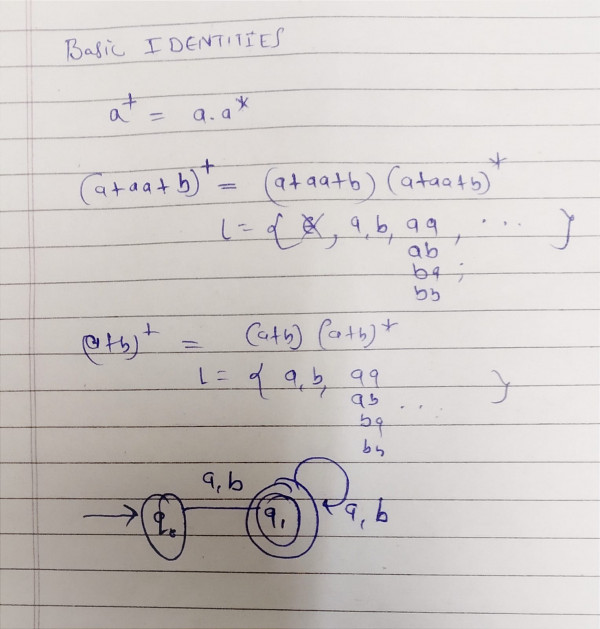 Basic IDENTITIES
a⁺ = a.a*
(a+aa+b)⁺ = (a+aa+b) (a+aa+b)*
L = { , a, b, aa, ... }
ab
ba ;
bb
(a+b)⁺ = (a+b) (a+b)*
L = { a, b, aa }
ab ...
ba
bb
a, b
q₀ q₁ a, b